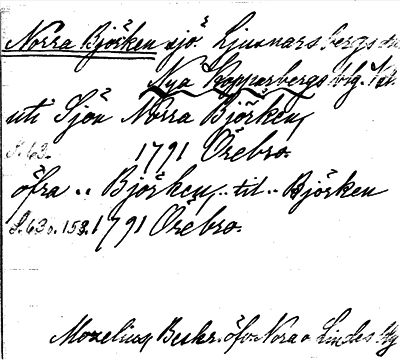 Norra Björken sjö. Ljusnarsbergs
Nya Kopparbergs blg.
uti Sjön Norra Björken,
S. 63. 1791 Örebro.
öfra " Björken, " til " Björken
S. 63 o. 158. 1791 Örebro.
Moxelius, Beskr. öfv. Nora o Lindes blg